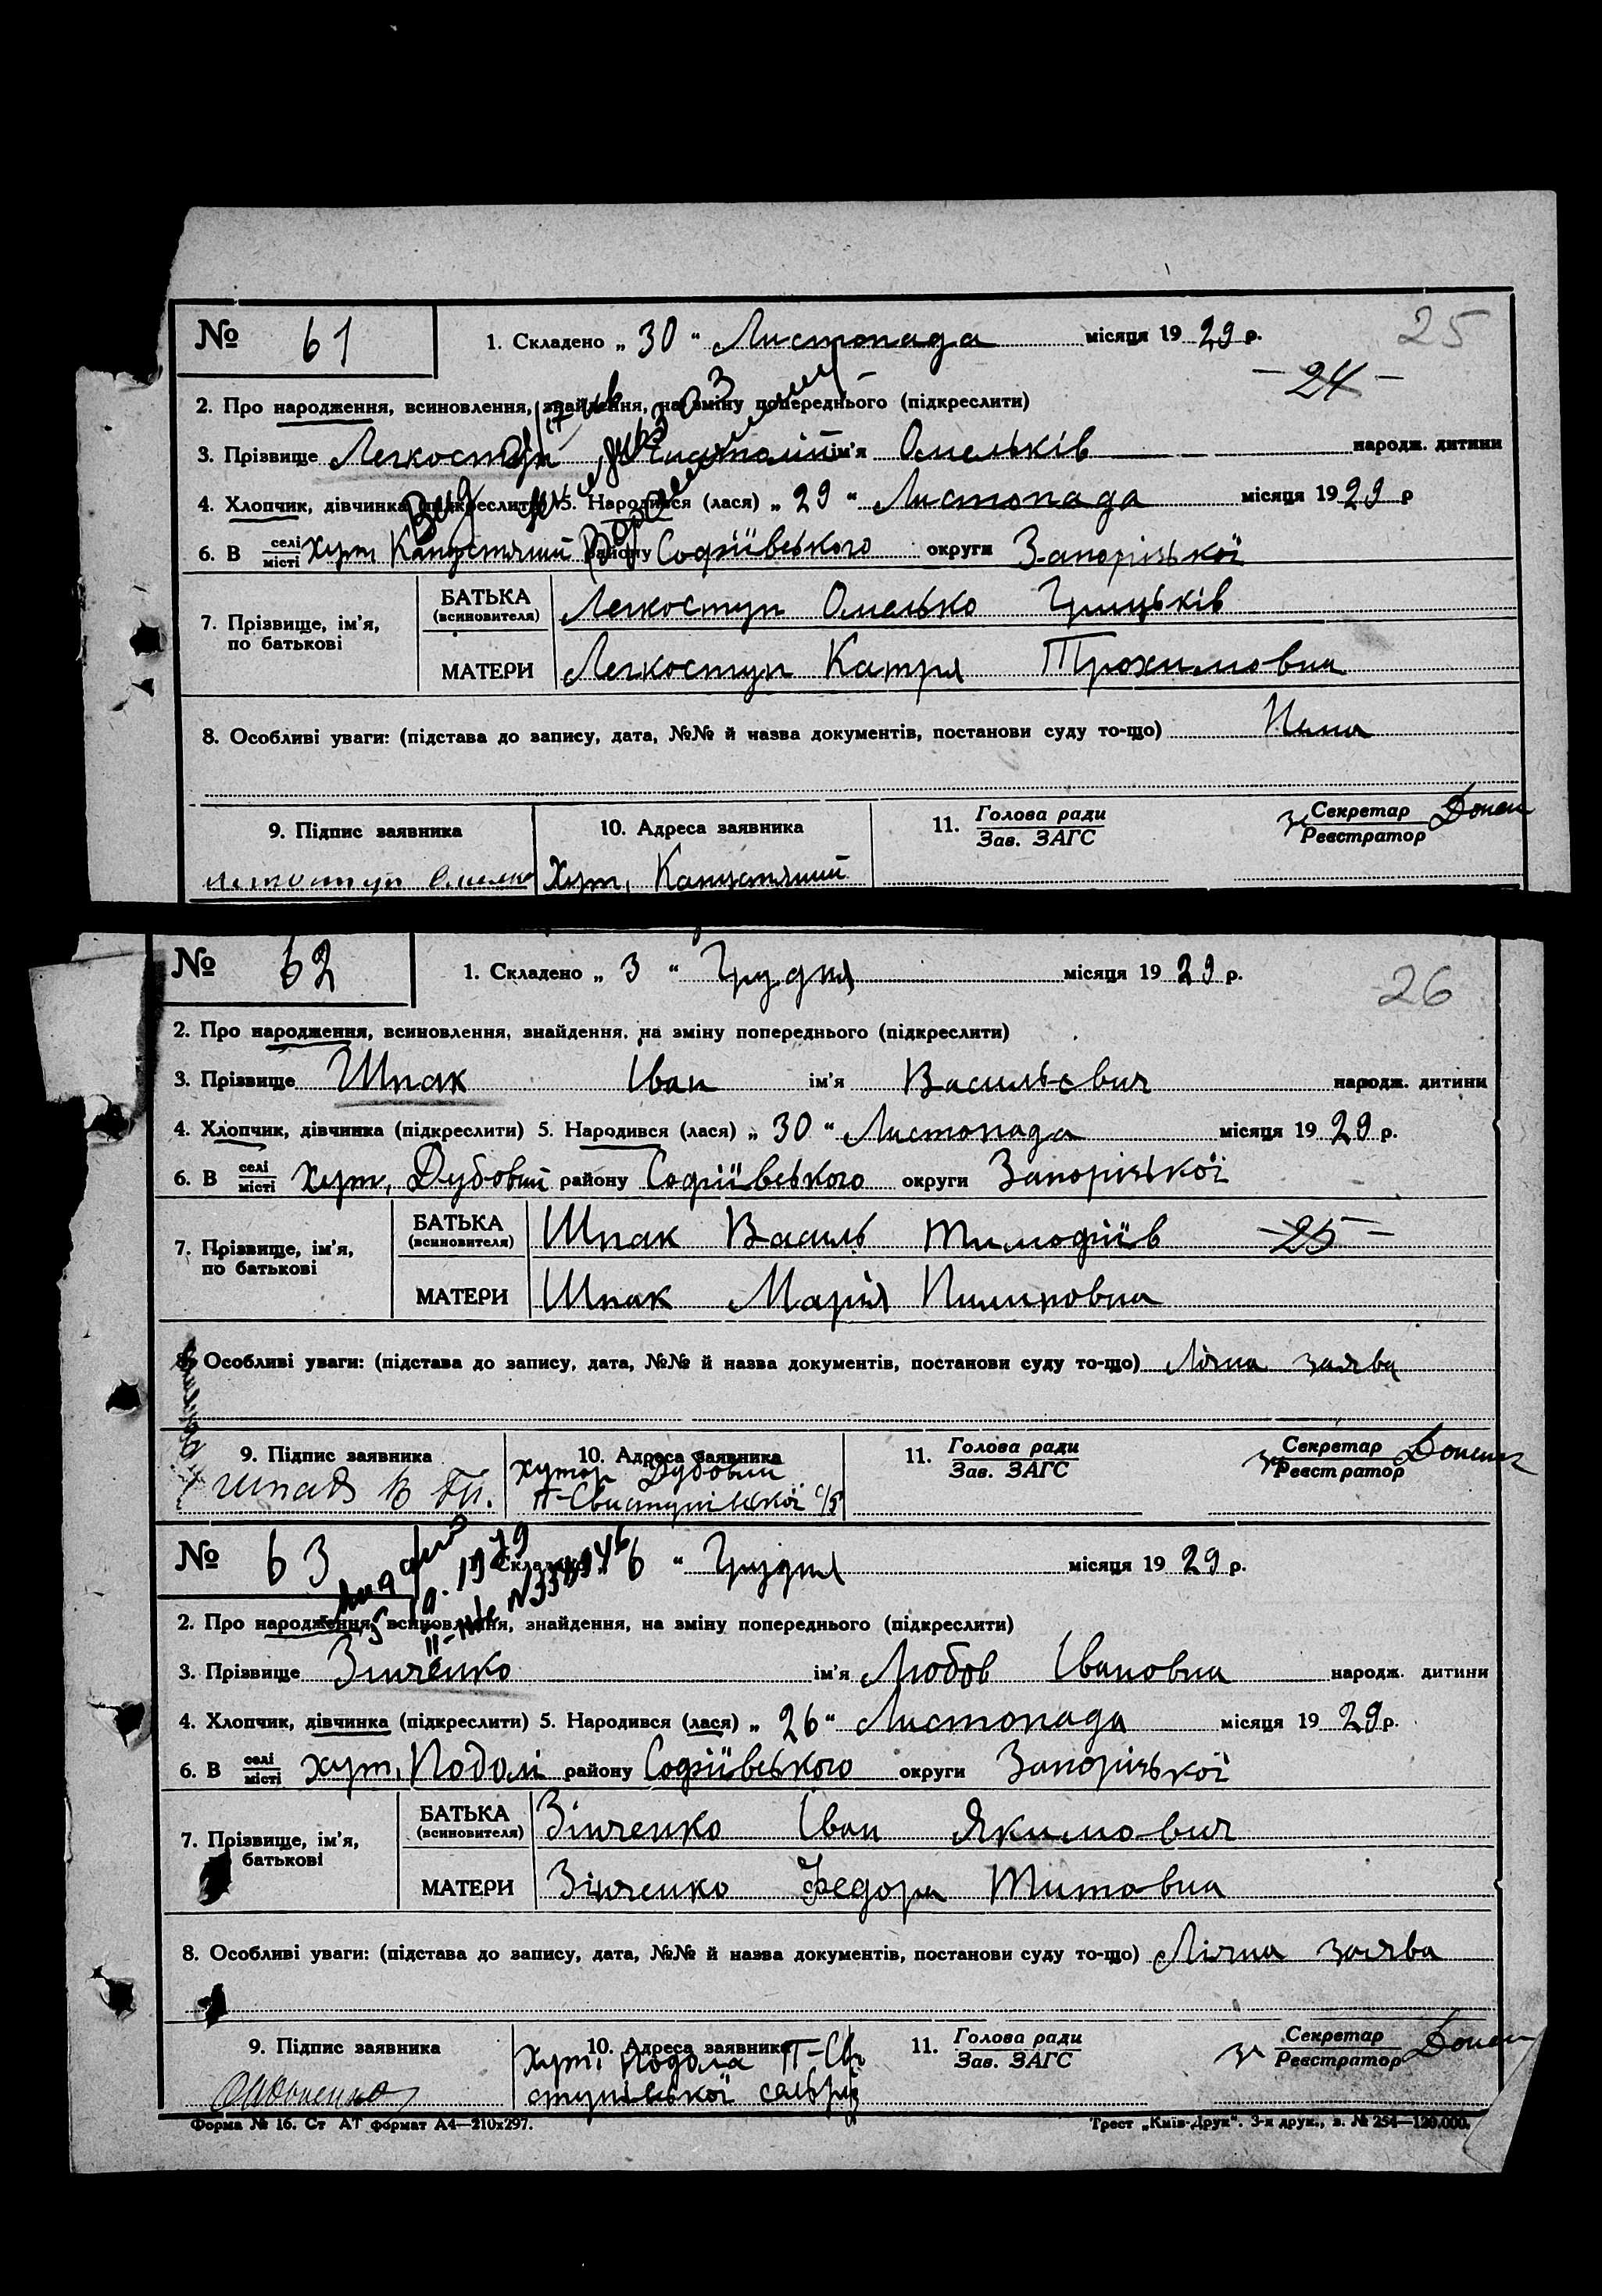 № 61 1. Складено „ 30 “ Листопада місяця 19 29 р. 25
— 24 —
2. Про народження, всиновлення, знайдення, на зміну попереднього (підкреслити)
3. Прізвище Легкоступ Анатолій ім'я Омельків народж. дитини
4. Хлопчик, дівчинка (підкреслити) 5. Народився (лася) „ 29 “ Листопада місяця 19 29 р
6. В селі місті хут. Капустяний району Софіївського округи Запорізької
7. Прізвище, ім'я, по батькові
БАТЬКА (всиновителя) Легкоступ Омелько Грицьків
МАТЕРИ Легкоступ Катря Трохимовна
8. Особливі уваги: (підстава до запису, дата, №№ й назва документів, постанови суду то-що) Нема
9. Підпис заявника 10. Адреса заявника 11. Голова ради Зав. ЗАГС за Секретар Реєстратор
Легкоступ Омелько Хут. Капустяний
№ 62 1. Складено „ 3 “ Грудня місяця 19 29 р.
26
2. Про народження, всиновлення, знайдення, на зміну попереднього (підкреслити)
3. Прізвище Шпак Іван ім'я Васильєвич народж. дитини
4. Хлопчик, дівчинка (підкреслити) 5. Народився (лася) „ 30 “ Листопада місяця 19 29 р.
6. В селі місті Хут. Дубовий району Софіївського округи Запорізької
7. Прізвище, ім'я, по батькові
БАТЬКА (всиновителя) Шпак Василь Тимофіїв — 25 —
МАТЕРИ Шпак Марія Пилиповна
8. Особливі уваги: (підстава до запису, дата, №№ й назва документів, постанови суду то-що) Лічна заява
9. Підпис заявника 10. Адреса заявника 11. Голова ради Зав. ЗАГС за Секретар Реєстратор
Шпак В Ти. хутор Дубовий
П-Свистунівської с/р
№ 63 1. Складено „ 6 “ Грудня місяця 19 29 р.
2. Про народження, всиновлення, знайдення, на зміну попереднього (підкреслити)
3. Прізвище Зінченко ім'я Любов Івановна народж. дитини
4. Хлопчик, дівчинка (підкреслити) 5. Народився (лася) „ 26 “ Листопада місяця 19 29 р.
6. В селі місті хут. Подолі району Софіївського округи Запорізької
7. Прізвище, ім'я, батькові
БАТЬКА (всиновителя) Зінченко Іван Якимович
МАТЕРИ Зінченко Федора Титовна
8. Особливі уваги: (підстава до запису, дата, №№ й назва документів, постанови суду то-що) Лічна заява
9. Підпис заявника 10. Адреса заявника 11. Голова ради Зав. ЗАГС за Секретар Реєстратор
Хут. Подола П-Сви
стунівської сельради
Форма № 16. Ст АТ формат А4—210х297. Трест „Київ-Друк“. 3-я друк., з. № 254—120.000.